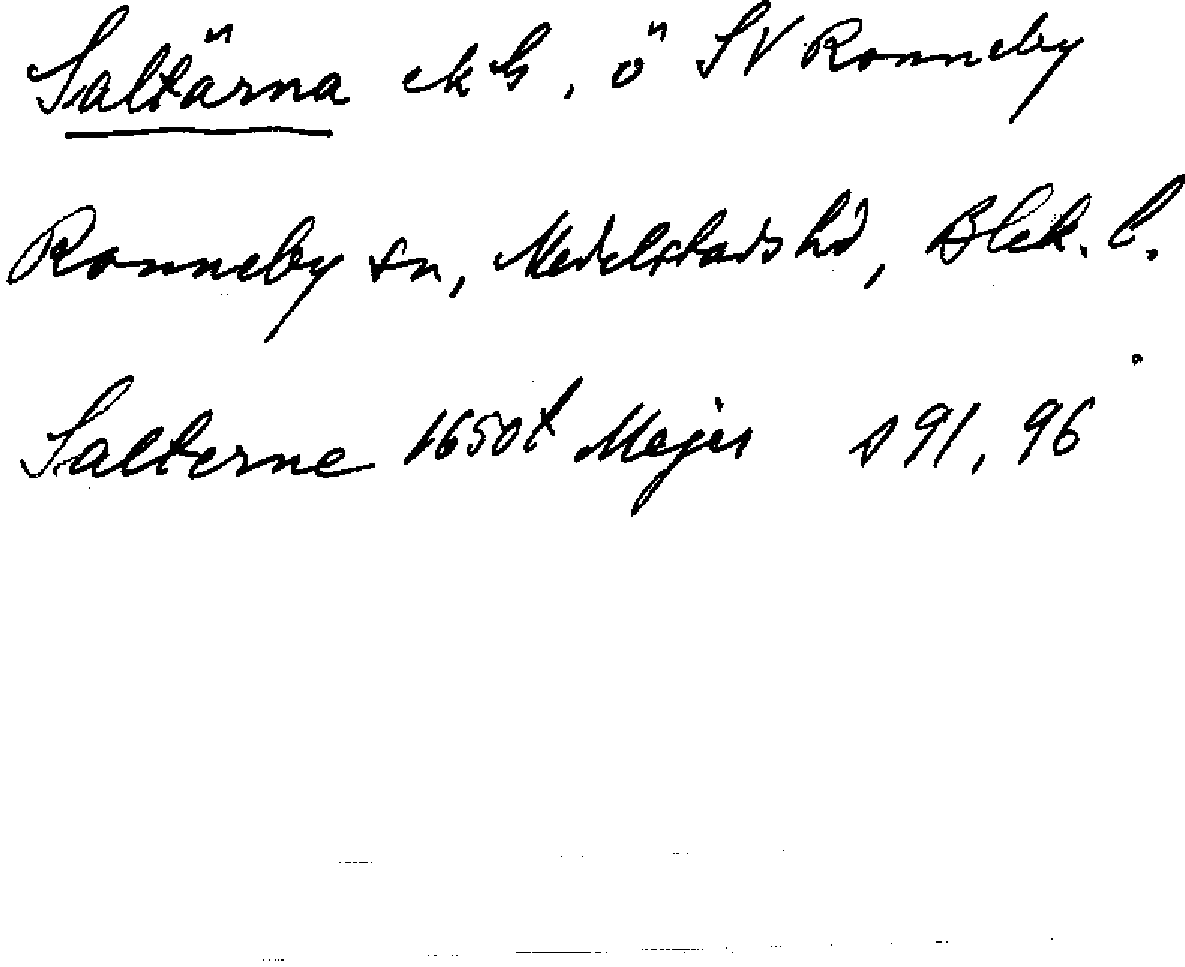 Saltärna ekbl, ö SV Ronneby
Ronneby sn, Medelstads hd, Blek. l.
Salterne 1650t Mejer s 91, 96